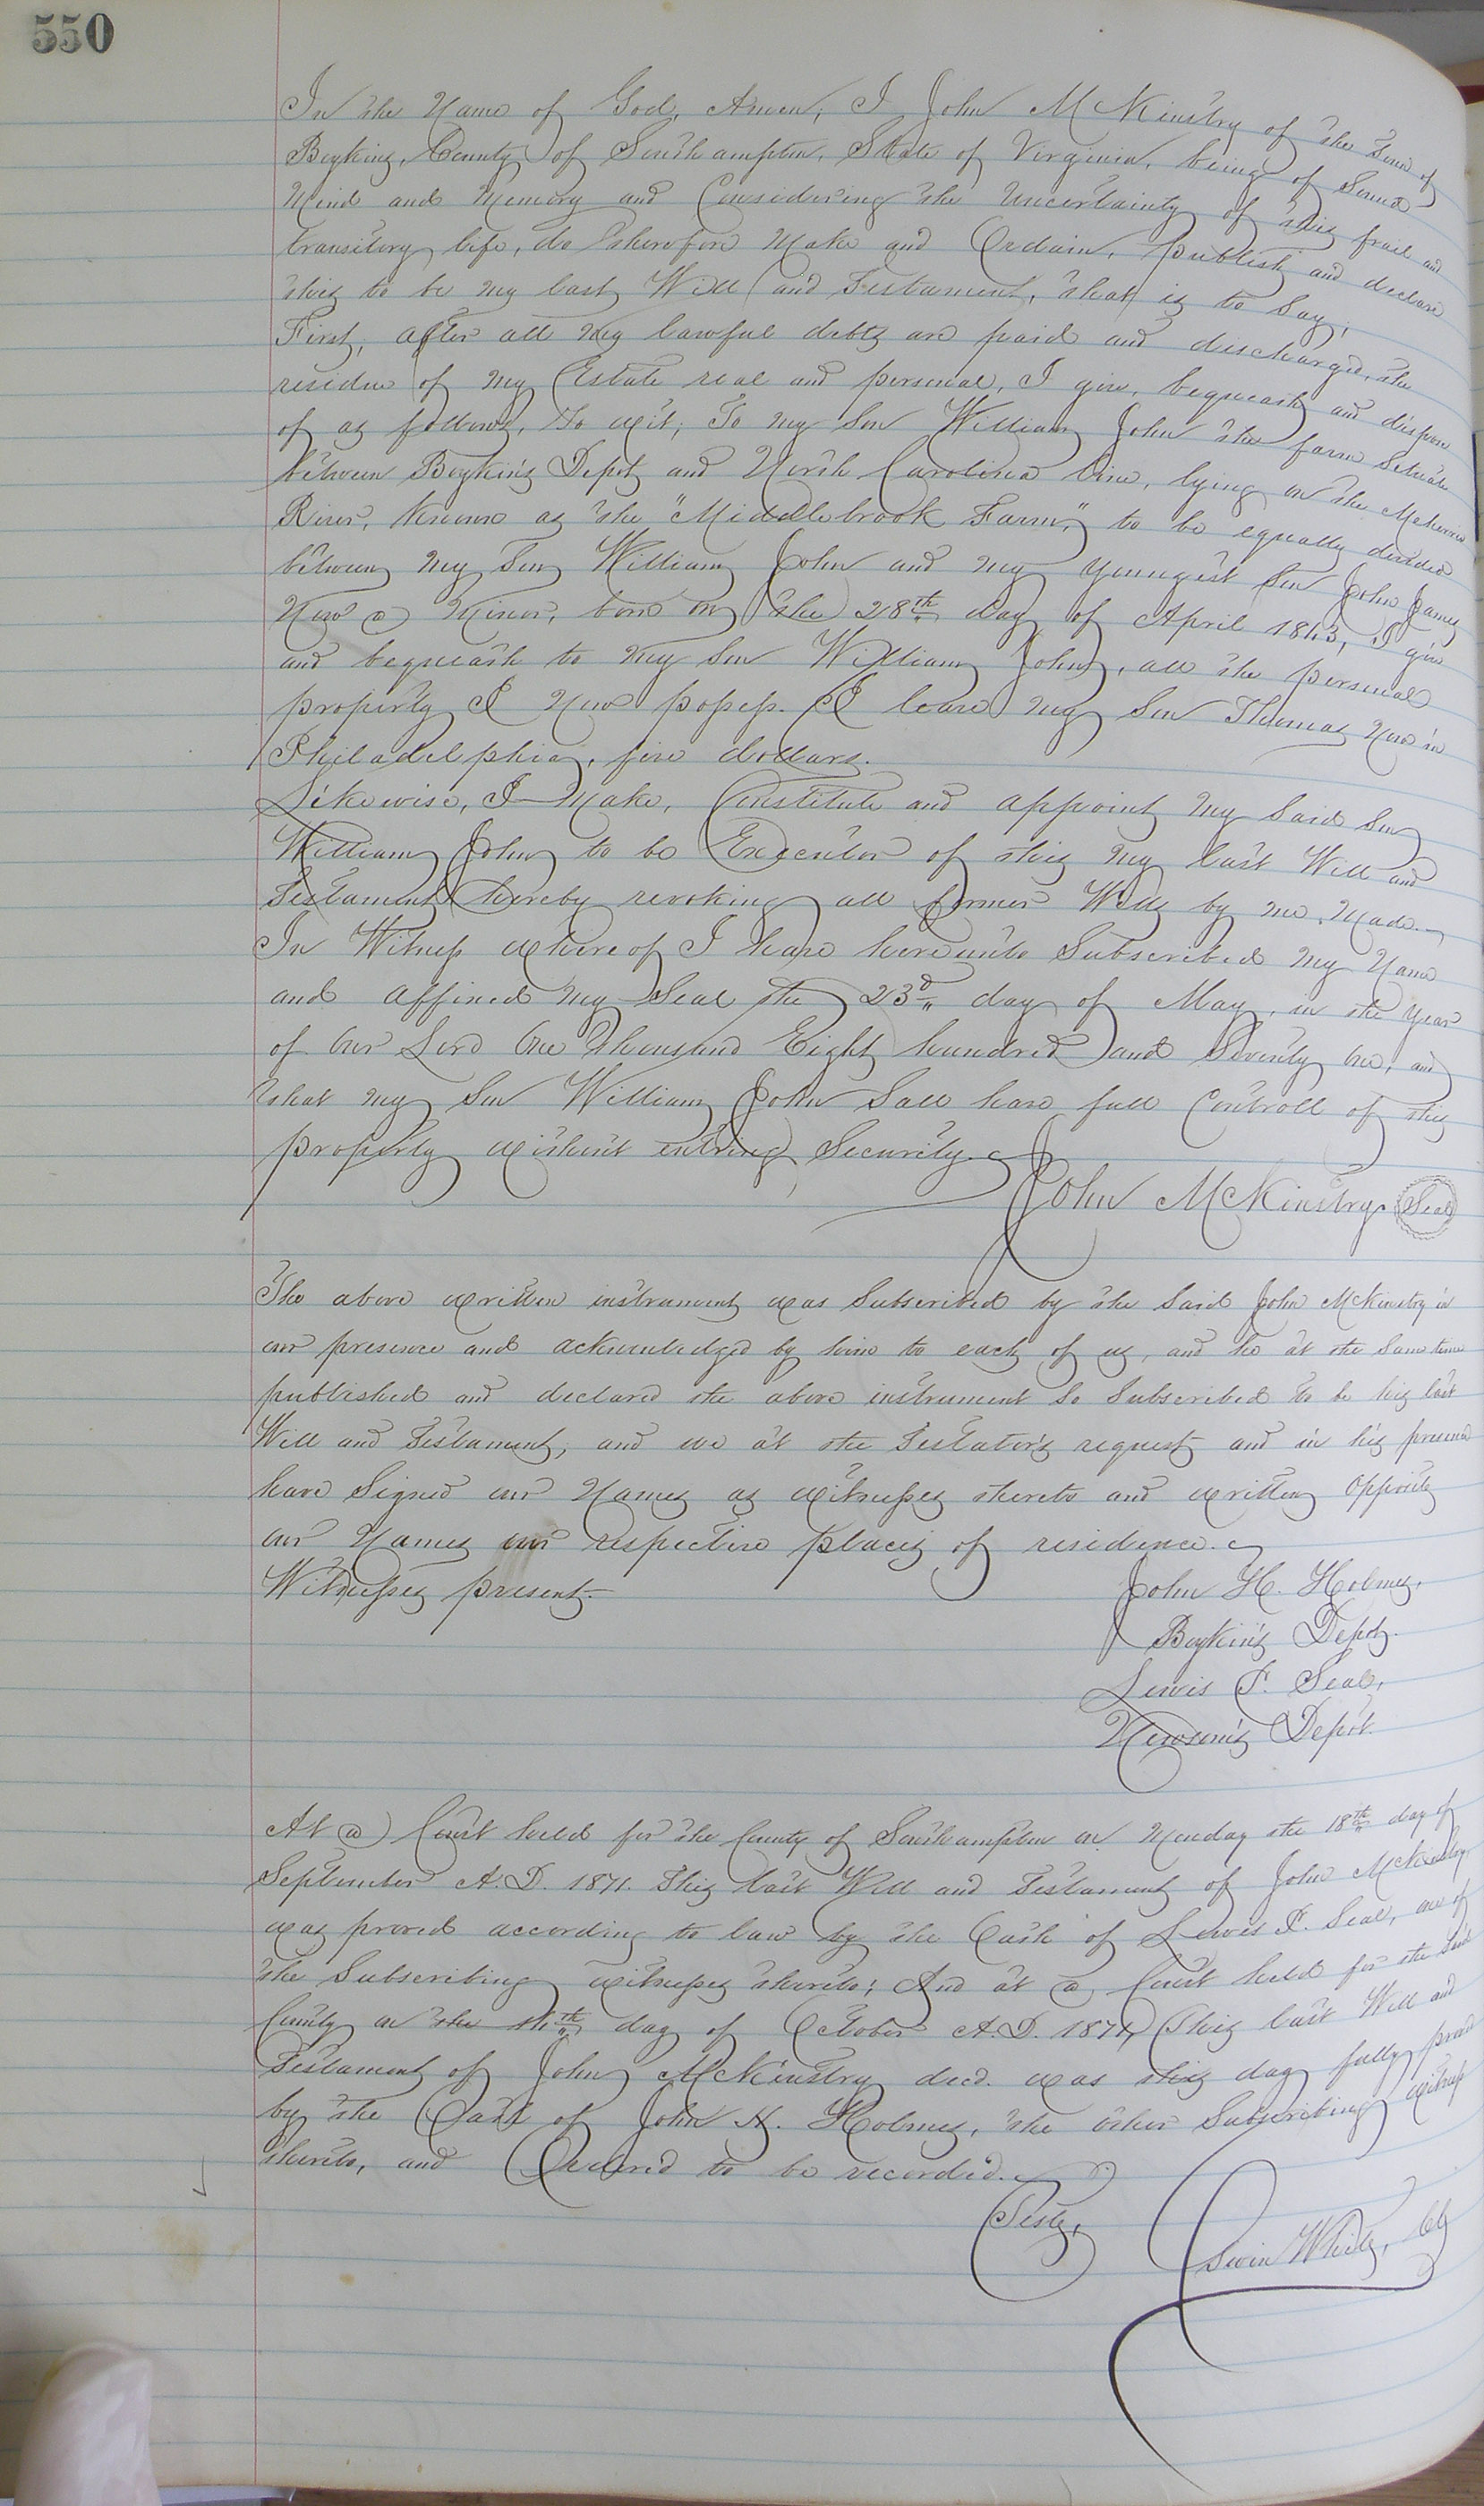 550
In the Name of God, Amen, I John McKinstry of the Town of
Boykins, County of Southampton, State of Virginia, being of Sound
Mind and Memory and Considering the Uncertainty of this frail and
transitory life, do therefore Make and Ordain, publish and declare
this to be my last Will and Testament, that is to Say;
First, after all my lawful debts are paid and discharged, the
residue of my Estate real and personal, I give, bequeath and dispose
of as follows, to wit; To my Son William John the farm Situate
between Boykin's Depot and North Carolina line, lying on the Meherrin
River, Known as the "Middlebrook Farm," to be equally divided
between my Son William John and my youngest Son John James
Now a Minor, born on the 28th day of April 1843, I give
and bequeath to my Son William John, all the personal
property I Now possess. I leave my Son Thomas Now in
Philadelphia, five dollars.
Likewise, I Make, Constitute and appoint my Said Son
William John to be Executor of this my last Will and
Testament hereby revoking all former Wills by me Made.
In Witness whereof I have hereunto Subscribed my Name
and affixed my Seal the 23d day of May, in the year
of Our Lord One thousand Eight hundred and Seventy One, and
that my Son William John Sall have full Controll of this
property without entring Security.
John McKinstry. Seal
The above written instrument was Subscribed by the Said John McKinstry in
our presence and acknowledged by him to each of us, and he at the Same time
published and declared the above instrument So Subscribed to be his last
Will and Testament, and we at the Testator's request and in his presence
have Signed our Names as witnesses thereto and written Opposite
our Names our respective places of residence.
Witnesses present.
John H. Holmes,
Boykin's Depot.
Lewis F. Seal,
Newsom's Depot.
At a Court held for the County of Southampton on Monday the 18th day of
September A.D. 1871. This last Will and Testament of John McKinstry
was proved according to law by the Oath of Lewis F. Seal, one of
the Subscribing witnesses thereto; And at a Court held for the Said
County on the 16th day of October A.D. 1871, This last Will and
Testament of John McKinstry decd. was this day fully proved
by the Oath of John H. Holmes, the other Subscribing witness
thereto, and Ordered to be recorded.
Teste,
Edwin White, Clk